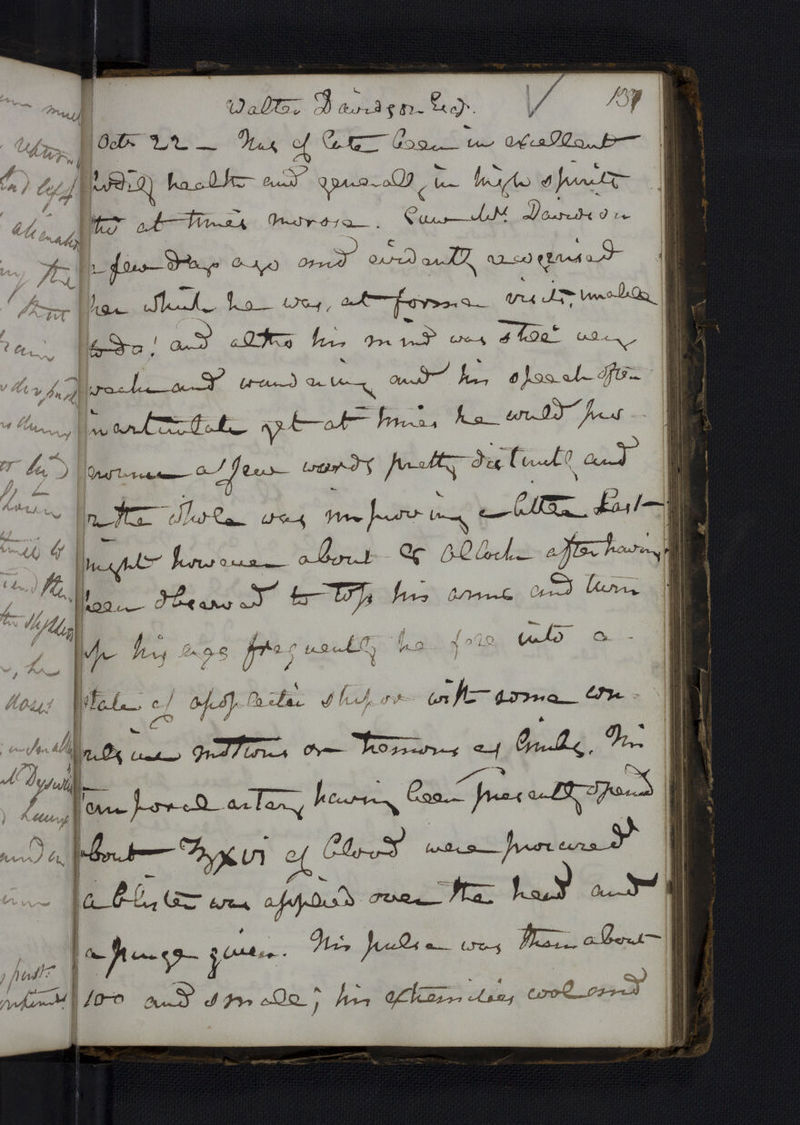 Walter Davidson Esqr. 157
Octr 22 – Has of late been in excellent
bodily health and generally in high spirits
tho' at times morose. Saw Mrs Davidson
a few days ago and evidently recognised
her which he was, at former visits, unable
to do; and altho his mind was still very
weak and wandering and his speech often
inarticulate yet at times he would pro-
nounce a few words pretty distinctly and
on the whole was improving a little. Last
night however about 8 OClock after having
been observed to toss his arms and turn
up his eyes frequently he fell into a
state of apoplectic stupor with some con-
vulsive motions or tremors of limbs. His
temporal artery having been presently opened
about ℥xvi of blood were procured
a blister was applied over the head and
a purge given. His pulse was then about
100 and small; his extremities cool and